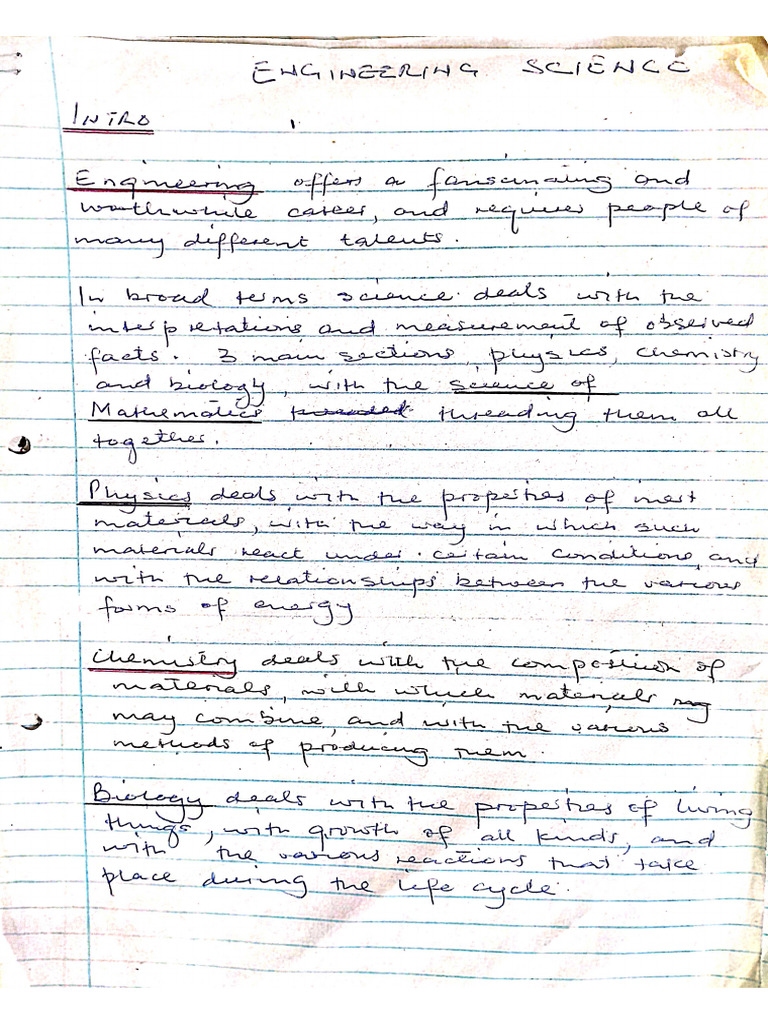 ENGINEERING SCIENCE
INTRO
Engineering offers a fansinaing and
worthwhile career, and requires people of
many different talents.
In broad terms science deals with the
interpretations and measurement of observed
facts. 3 main sections, physics, chemistry
and biology, with the science of
Mathematics threading them all
together.
Physics deals with the properties of inert
materials, with the way in which such
materials react under certain conditions, and
with the relationships between the various
forms of energy
Chemistry deals with the composition of
materials, with which materials
may combine, and with the various
methods of producing them.
Biology deals with the properties of living
things, with growth of all kinds, and
with the various reactions that take
place during the life cycle.